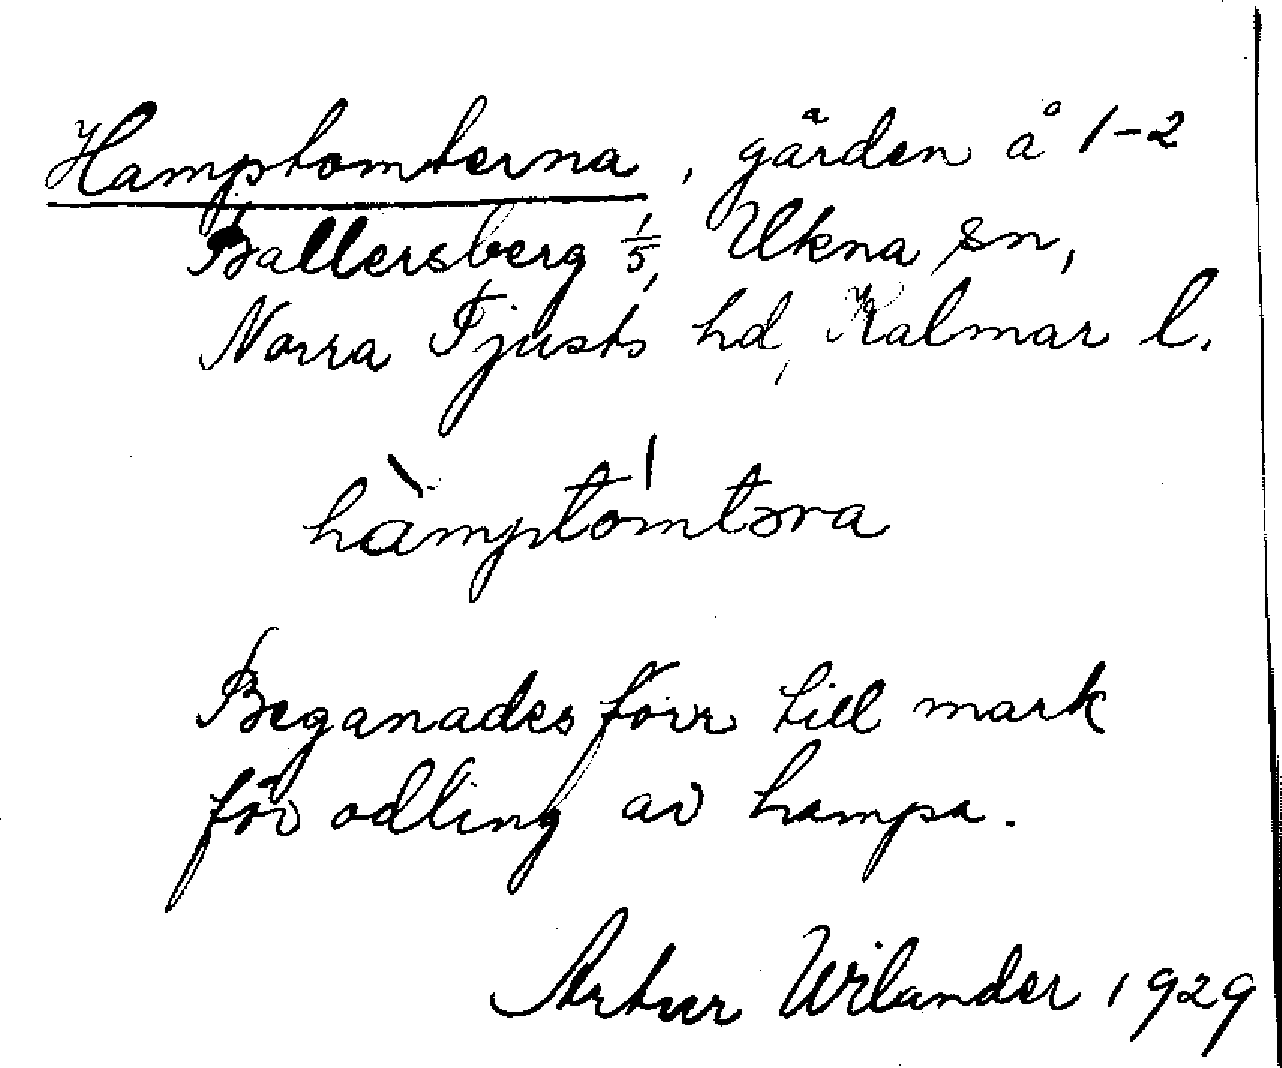 Hamptomterna, gärden å 1-2
Ballersberg 1/5, Ukna sn,
Norra Tjusts hd, Kalmar l.
hàmptómtəra
Beganades förr till mark
för odling av hampa.
Artur Wilander 1929